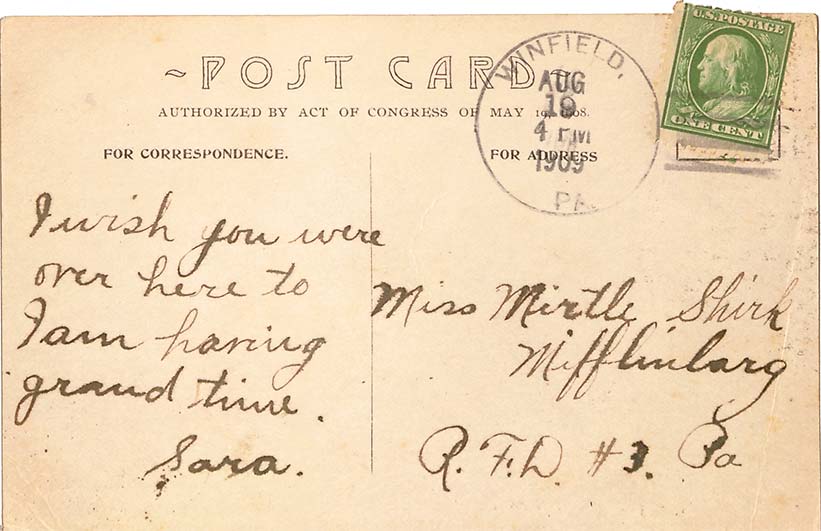 ~POST CARD~
AUTHORIZED BY ACT OF CONGRESS OF MAY 19, 1908.
WINFIELD,
AUG
19
4 PM
1909
PA.
U.S. POSTAGE
ONE CENT
FOR CORRESPONDENCE.
FOR ADDRESS
I wish you were
over here to
I am having
grand time.
Sara.
Miss Mirtle Shirk
Mifflinbarg
R. F. D. #3. Pa